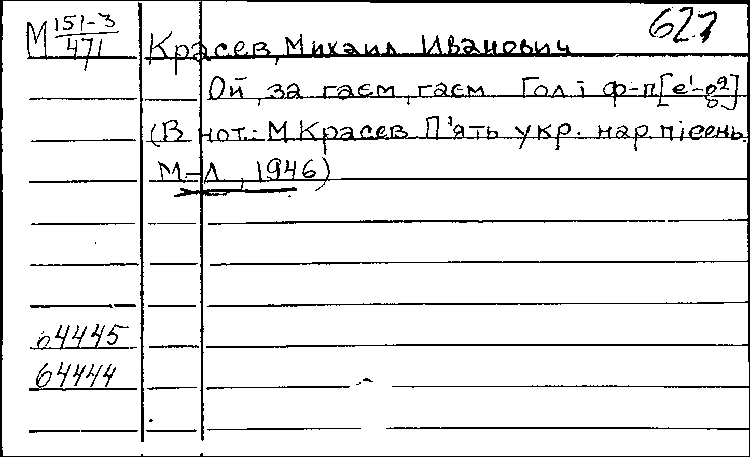 М 151-3/471 Красев, Михаил Иванович 627
Ой, за гаєм, гаєм Гол і ф-п [e¹-g²]
(В нот.: М. Красев П'ять укр. нар. пісень.
М-Л, 1946)
64445
64444